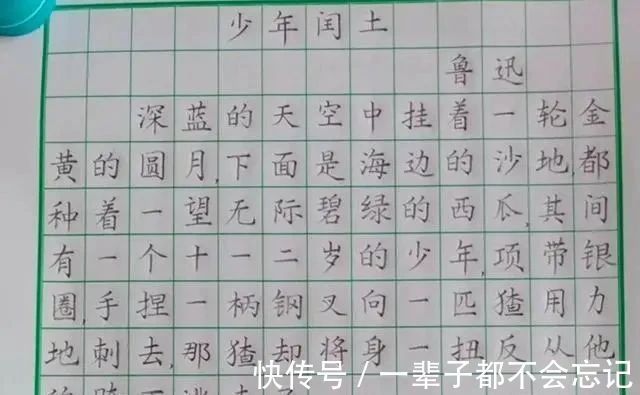 少年闰土
鲁迅
深蓝的天空中挂着一轮金
黄的圆月,下面是海边的沙地,都
种着一望无际碧绿的西瓜,其间
有一个十一二岁的少年,项带银
圈,手捏一柄钢叉向一匹猹用力
地刺去,那猹却将身一扭反从他
快传号/一辈子都不会忘记